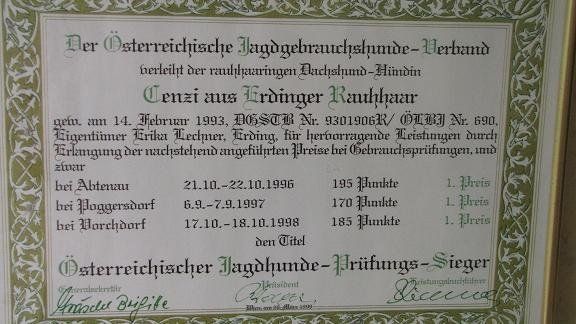 Der Österreichische Jagdgebrauchshunde-Verband
verleiht der rauhhaaringen Dachshund-Hündin
Cenzi aus Erdinger Rauhhaar
gew. am 14. Februar 1993, DGSTB Nr. 9301906R/ ÖLBJ Nr. 690,
Eigentümer Erika Lechner, Erding, für hervorragende Leistungen durch
Erlangung der nachstehend angeführten Preise bei Gebrauchsprüfungen, und
zwar
bei Abtenau 21.10.-22.10.1996 195 Punkte 1. Preis
bei Poggersdorf 6.9.-7.9.1997 170 Punkte 1. Preis
bei Vorchdorf 17.10.-18.10.1998 185 Punkte 1. Preis
den Titel
Österreichischer Jagdhunde-Prüfungs-Sieger
Generalsekretär Präsident Leistungsbuchführer
Brigitte
Wien, am 1999